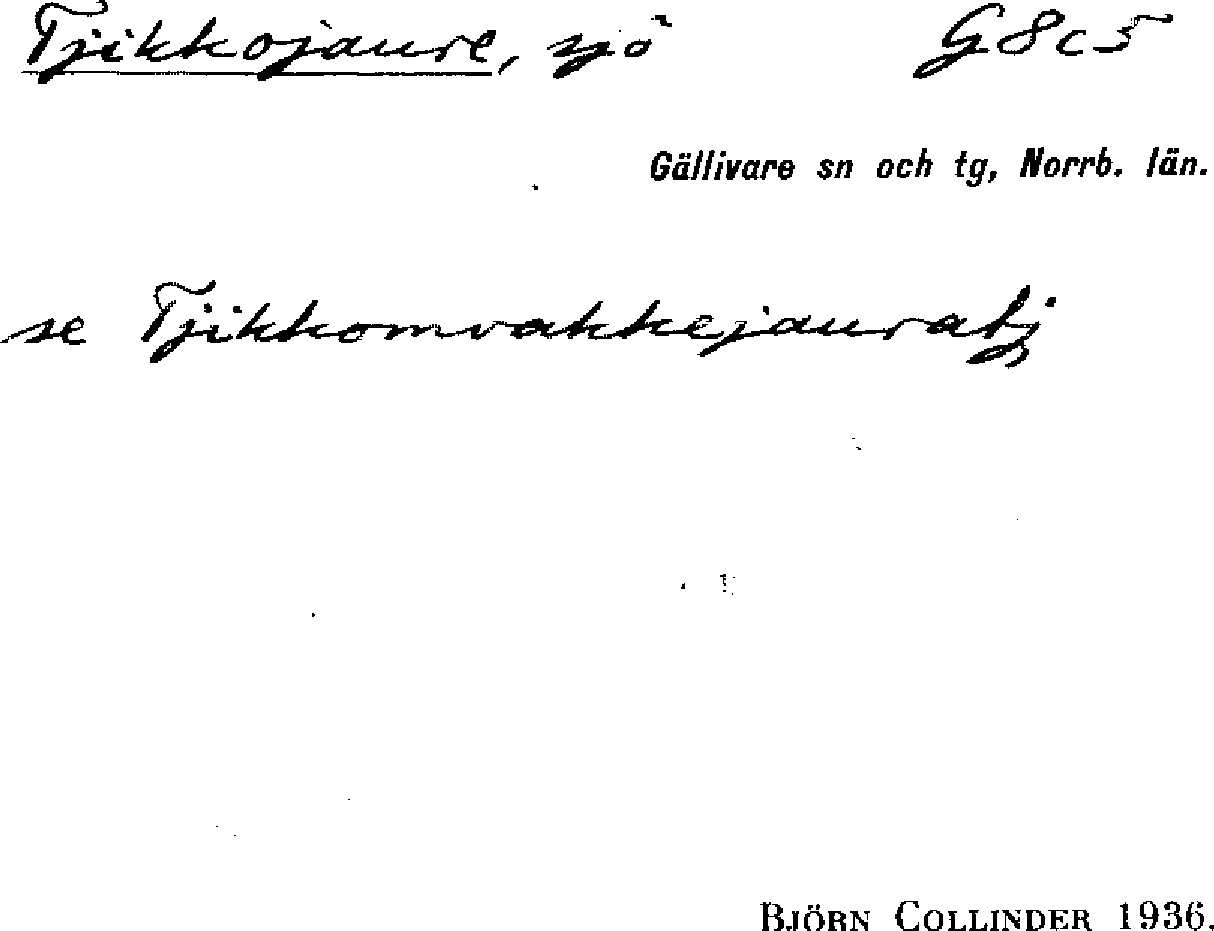 Tjikkojaure, sjö G8c5
Gällivare sn och tg, Norrb. län.
se Tjikkomvakkejauratj
BJÖRN COLLINDER 1936.